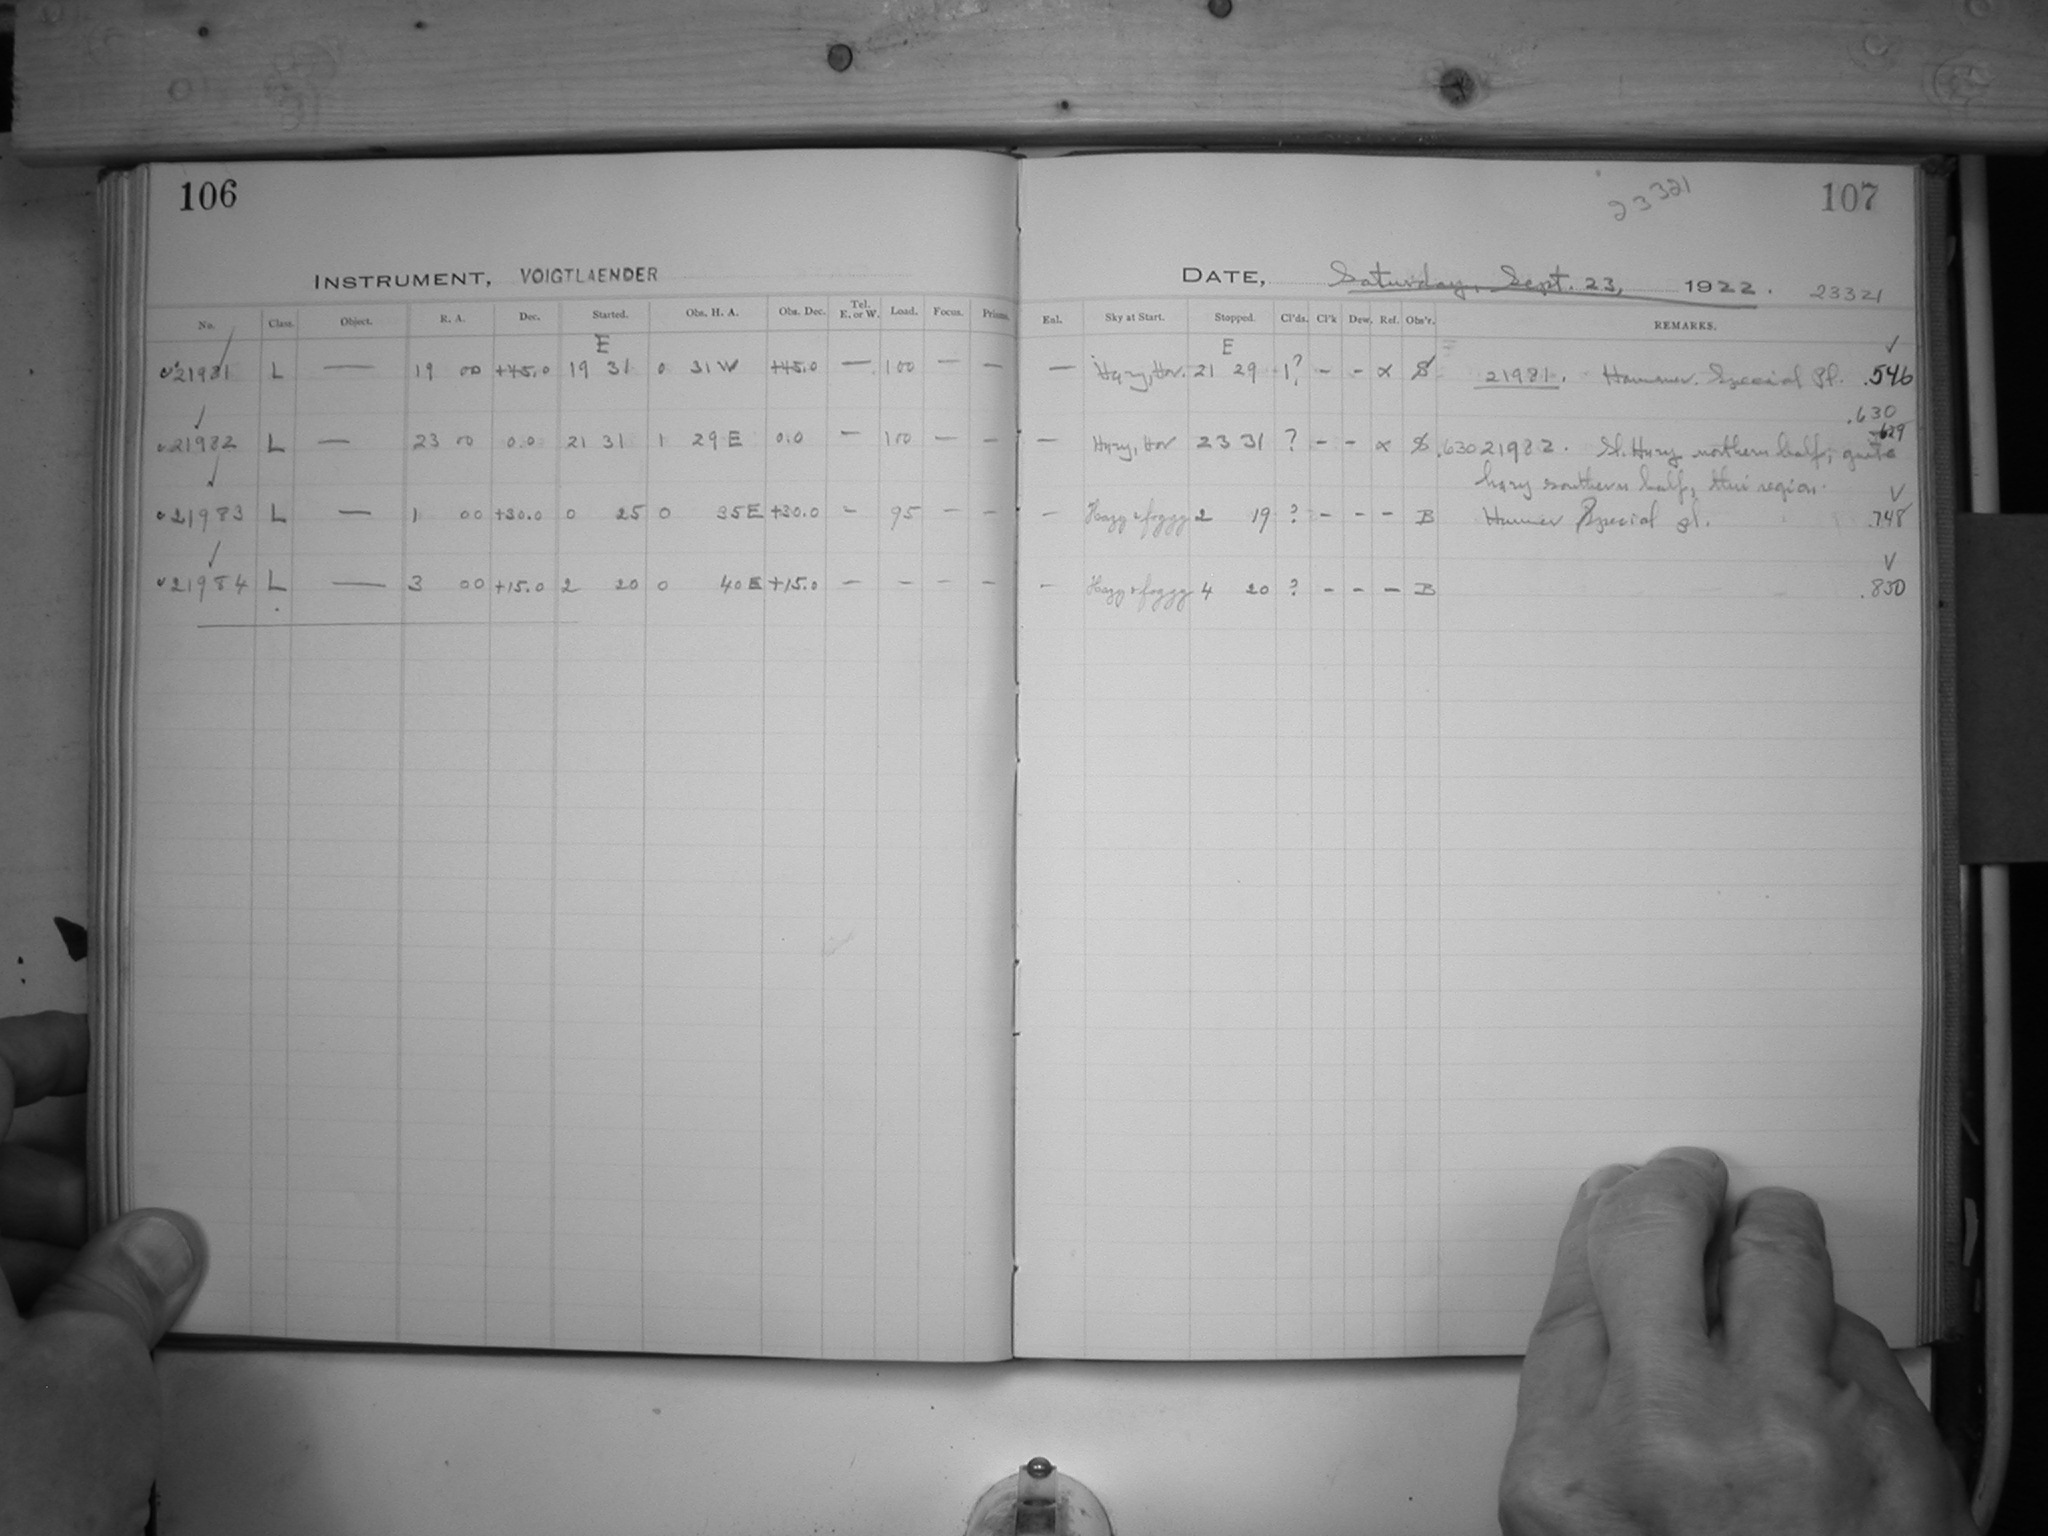 106
INSTRUMENT, VOIGTLAENDER
No. Class. Object. R. A. Dec. Started. Obs. H. A. Obs. Dec. Tel. E. or W. Load. Focus. Prisms.
E
21981 L — 19 00 +45.0 19 31 0 31 W +45.0 — 100 — —
21982 L — 23 00 0.0 21 31 1 29 E 0.0 — 100 — —
21983 L — 1 00 +30.0 0 25 0 35 E +30.0 - 95 - -
21984 L — 3 00 +15.0 2 20 0 40 E +15.0 — - - -
23321 107
DATE, Saturday, Sept. 23, 1922. 23321
Enl. Sky at Start. Stopped. Cl'ds. Cl'k Dew. Ref. Obs'r. REMARKS.
E
— Hazy, Hor. 21 29 1? - - x S 21981. Hammer. Special Pl. .546
.630
.629
— Hazy, Hor 23 31 ? - - x S .630 21982. Sl. Hazy northern half; quite
hazy southern half, this region.
- Hazy & foggy 2 19 ? - - - B Hammer Special pl. .748
- Hazy & foggy 4 20 ? - - - B .830